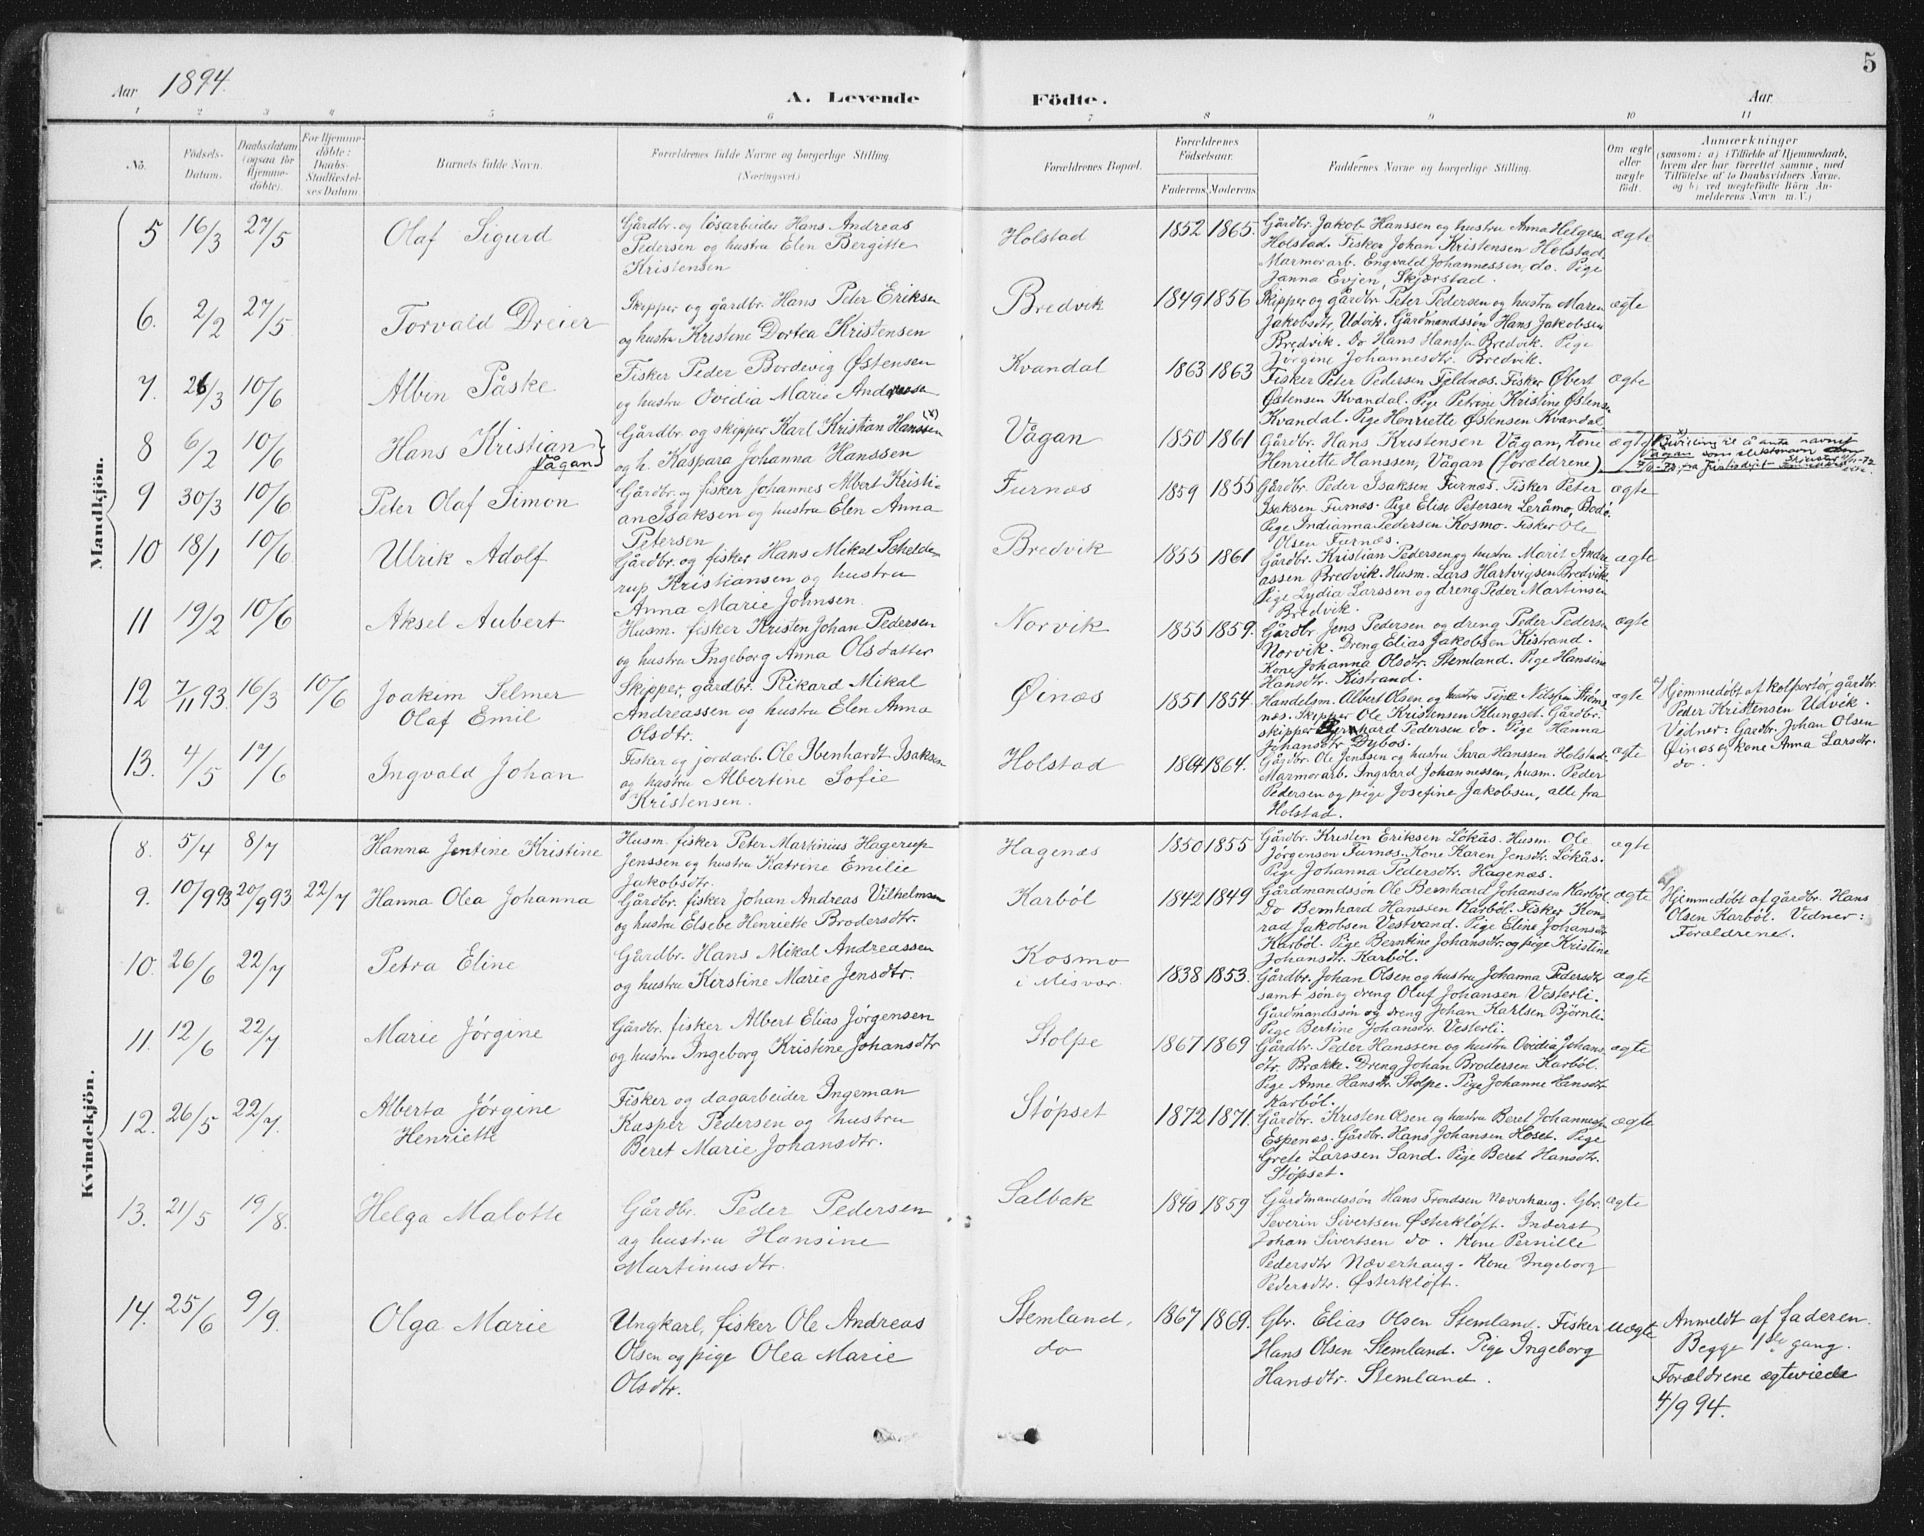 Aar 1894.
A. Levende Födte.
Aar
5
1 2 3 4 5 6 7 8 9 10 11
No.
Födsels-Datum.
Daabsdatum (ogsaa for Hjemme-döbte).
For Hjemme-döbte: Daabs-Stadfæstel-ses Datum.
Barnets fulde Navn.
Forældrenes fulde Navne og borgerlige Stilling.
(Næringsvei.)
Forældrenes Bopæl.
Forældrenes Födselsaar.
Faderens. Moderens.
Faddernes Navne og borgerlige Stilling.
Om ægte eller uægte födt.
Anmærkninger
(saasom: a) i Tilfælde af Hjemmedaab,
hvem der har forrettet samme, med
Tilföielse af to Daabsvidners Navne.
og b) ved uægtefödte Börn An-
melderens Navn m. V.)
Mandkjön.
5 16/3 27/5 Olaf Sigurd
Gårdbr. og løsarbeider Hans Andreas
Pedersen og hustru Elen Bergitte
Kristensen
Holstad 1852 1865.
Gårdbr. Jakob Hanssen og hustru Anna Helgesen
Holstad. Fisker Johan Kristensen Holstad.
Marmorarb. Engvald Johannessen, do. Pige
Janna Evjen, Skjærstad.
ægte
6. 2/2 27/5 Torvald Dreier
Skipper og gårdbr. Hans Peter Eriksen
og hustru Kristine Dortea Kristensen
Bredvik 1849 1856
Skipper og gårdbr. Peter Pedersen og hustru Maren
Jakobsdtr, Udvik. Gårdmandssøn Hans Jakobsen
Bredvik. Do Hans Hanssen Bredvik. Pige
Jörgine Johannesdtr. Bredvik.
ægte
7. 26/3 10/6 Albin Påske
Fisker Peder Bordevig Østensen
og hustru Ovidia Marie Andreasen
Kvandal 1863 1863
Fisker Peter Pedersen Fjeldnæs. Fisker Øvert
Østensen Kvandal. Pige Petrine Kristine Østensen
Kvandal. Pige Henriette Østensen Kvandal
ægte
8 6/2 10/6 Hans Kristian
Vågan
Gårdbr. og skipper Karl Kristian Hanssen (x)
og h. Kaspara Johanna Hanssen
Vågan 1850 1861
Gårdbr. Hans Kristensen Vågan, kone
Henriette Hanssen, Vågan (forældrene)
ægte
x) Bevilling til å anta navnet
Vågan som slektsnavn
9 30/3 10/6 Peter Olaf Simon
Gårdbr. og fisker Johannes Albert Kristi-
an Isaksen og hustru Elen Anna
Petersen
Furnæs 1859 1855
Gårdbr. Peder Isaksen Furnæs. Fisker Peter
Isaksen Furnæs. Pige Elise Petersen Leråmo, Bodø.
Pige Indianna Pedersen Kosmo. Fisker Ole
Olsen Furnæs.
ægte
10 18/1 10/6 Ulrik Adolf
Gårdbr. og fisker Hans Mikal Schelde-
rup Kristiansen og hustru
Anna Marie Johnsen.
Bredvik 1855 1861
Gårdbr. Kristian Pedersen og hustru Marit Andre
assen Bredvik. Husm. Lars Hartvigsen Bredvik.
Pige Lydia Larssen og dreng Peder Martinsen
Bredvik.
ægte
11 19/2 10/6 Aksel Aubert
Husm. fisker Kristen Johan Pedersen
og hustru Ingeborg Anna Olsdatter
Norvik 1855 1859.
Gårdbr. Jens Pedersen og dreng Peder Pedersen
Norvik. Dreng Elias Jakobsen Kistrand.
Kone Johanna Olsdtr. Stemland. Pige Hansine
Hansdtr. Kistrand.
ægte
12 7/11 93. 16/3 10/6 Joakim Selmer
Olaf Emil
Skipper, gårdbr. Rikard Mikal
Andreassen og hustru Elen Anna
Olsdtr.
Øinæs 1851 1854.
Handelsm. Albert Olsen og hustru Tine Nielsen Strøm-
næs. Skipper Ole Kristensen Klungset. Gårdbr.
skipper Bernhard Pedersen do. Pige Hanna
Johansdtr Dybos.
ægte
Hjemmedøbt af kolportør, gårdbr.
Peder Kristensen Udvik.
Vidner: Gårdbr. Johan Olsen
Øinæs og kone Anna Larsdtr.
do.
13. 4/5 17/6 Ingvald Johan
Fisker og jordarb. Ole Ibenhardt Isaksen
og hustru Albertine Sofie
Kristensen.
Holstad 1864 1864.
Gårdbr. Ole Jenssen og hustru Sara Hanssen Holstad.
Marmorarb. Ingvard Johannessen, husm. Peder
Pedersen og pige Josefine Jakobsen, alle fra
Holstad.
ægte
Kvindekjön.
8. 5/4 8/7 Hanna Jentine Kristine
Husm. fisker Peter Martinius Hagerup
Jenssen og hustru Katrine Emilie
Jakobsdtr.
Hagenæs 1850 1855
Gårdbr. Kristen Eriksen Løkås. Husm. Ole
Jørgensen Furnæs. Kone Karen Jensdtr. Løkås.
Pige Johanna Pedersdtr. Hagenæs.
ægte
9. 10/9 93 20/9 93 22/7 Hanna Olea Johanna
Gårdbr. fisker Johan Andreas Vilhelmsen
og hustru Elsebe Henriette Brodersdtr.
Karbøl 1842 1849
Gårdmandssøn Ole Bernhard Johansen Karbøl
Do Bernhard Hanssen Karbøl. Fisker Kon
rad Jakobsen Vestvand. Pige Eline Johansdtr
Karbøl. Pige Berntine Johansdtr. og pige Kristine
Johansdtr. Karbøl.
ægte
Hjemmedøbt af gårdbr. Hans
Olsen Karbøl. Vidner:
Forældrene.
10. 26/6 22/7 Petra Eline
Gårdbr. Hans Mikal Andreassen
og hustru Kirstine Marie Jensdtr.
Kosmo
i Misvær. 1838 1853.
Gårdbr. Johan Olsen og hustru Johanna Pedersdtr
samt søn og dreng Oluf Johansen Vesterli.
Gårdmandssøn og dreng Johan Karlsen Bjørnli.
Pige Bertine Johansdtr. Vesterli.
ægte
11. 12/6 22/7 Marie Jörgine
Gårdbr. fisker Albert Elias Jørgensen
og hustru Ingeborg Kristine Johansdtr
Stolpe 1867 1869
Gårdbr. Peder Hanssen og hustru Ovidia Johans-
dtr. Brække. Dreng Johan Brodersen Karbøl.
Pige Anne Hansdtr Stolpe. Pige Johanne Hansdtr.
Karbøl.
ægte
12. 26/5 22/7. Alberta Jörgine
Henriette
Fisker og dagarbeider Ingeman
Kasper Pedersen og hustru
Beret Marie Johansdtr.
Støpset 1872 1871.
Gårdbr. Kristen Olsen og hustru Beret Johannesd.
Espenæs. Gårdbr. Hans Johansen Høset. Pige
Grete Larssen Sand. Pige Beret Hansdtr.
Støpset.
ægte
13. 21/5 19/8. Helga Malotte
Gårdbr. Peder Pedersen
og hustru Hansine
Martinusdtr.
Salbak 1840 1859
Gårdmandssøn Hans Trondsen Næverhaug. Gbr.
Severin Sivertsen Østerkløft. Inderst
Johan Sivertsen do. Kone Pernille
Pedersdtr Næverhaug. Kone Ingeborg
Pedersdtr. Østerkløft.
ægte
14. 25/6 9/9. Olga Marie
Ungkarl, fisker Ole Andreas
Olsen og pige Olea Marie
Olsdtr.
Stemland,
do 1867 1869.
Gbr. Elias Olsen Stemland. Fisker
Hans Olsen Stemland. Pige Ingeborg
Hansdtr. Stemland.
uægte
Anmeldt af faderen.
Begge 1de gang.
Forældrene ægteviede
4/9 94.